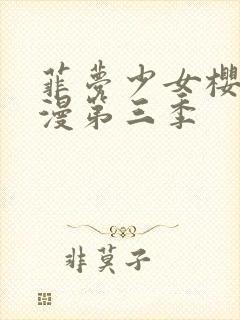 菲梦少女樱
漫第三季
非莫子